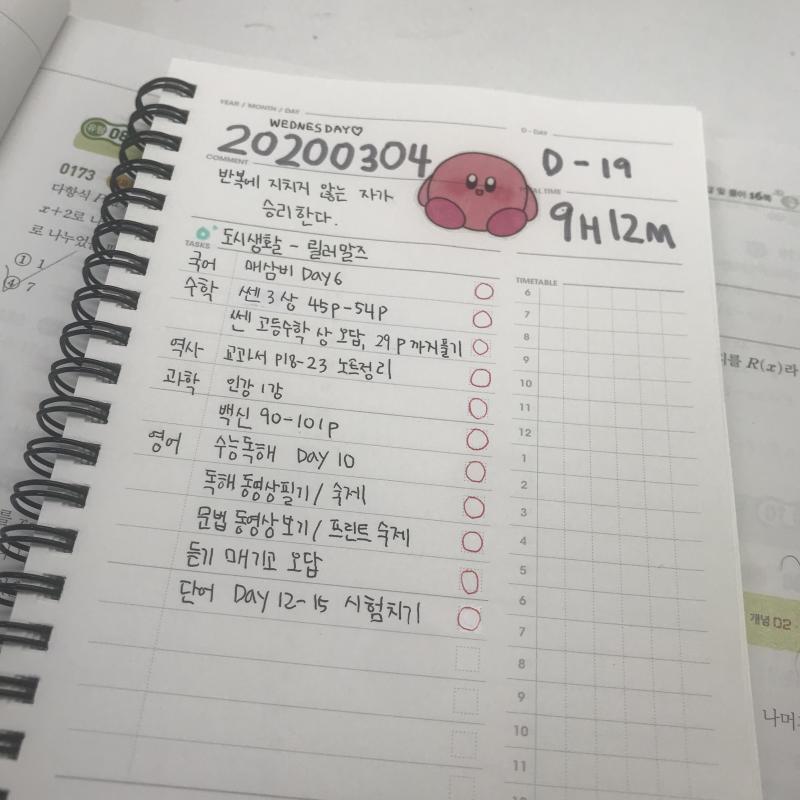 YEAR / MONTH / DAY
WEDNESDAY♡
20200304
D-DAY
D-19
COMMENT
반복에 지치지 않는 자가
승리한다.
TOTAL TIME
9H 12M
TASKS
도시생활 - 릴러말즈
국어 매삼비 Day 6
수학 쎈 3상 45p-54p
쎈 고등수학 상 오답, 29p까지풀기
역사 교과서 P18-23 노트정리
과학 인강 1강
백신 90-101p
영어 수능독해 DAY 10
독해 동영상필기 / 숙제
문법 동영상보기 / 프린트 숙제
듣기 매기고 오답
단어 Day 12-15 시험치기
TIMETABLE
6
7
8
9
10
11
12
1
2
3
4
5
6
7
8
9
10
11
유형 08
0173
다항식
x+2로 나
로 나누었
① 1
④ 7
및 풀이 16쪽
를 R(x)라
개념 02
나머